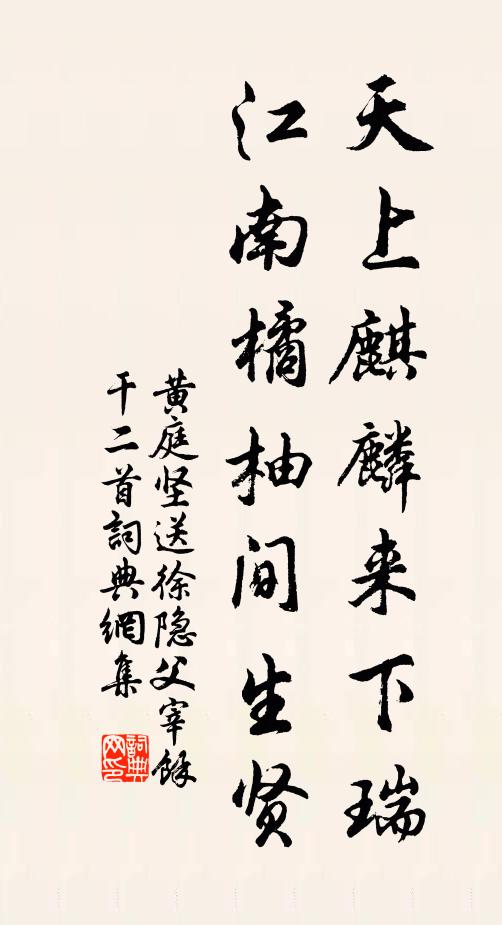 天上麒麟来下瑞
江南橘柚间生贤
黄庭坚送徐隐父宰馀
干二首詞典網集
詞典
网印